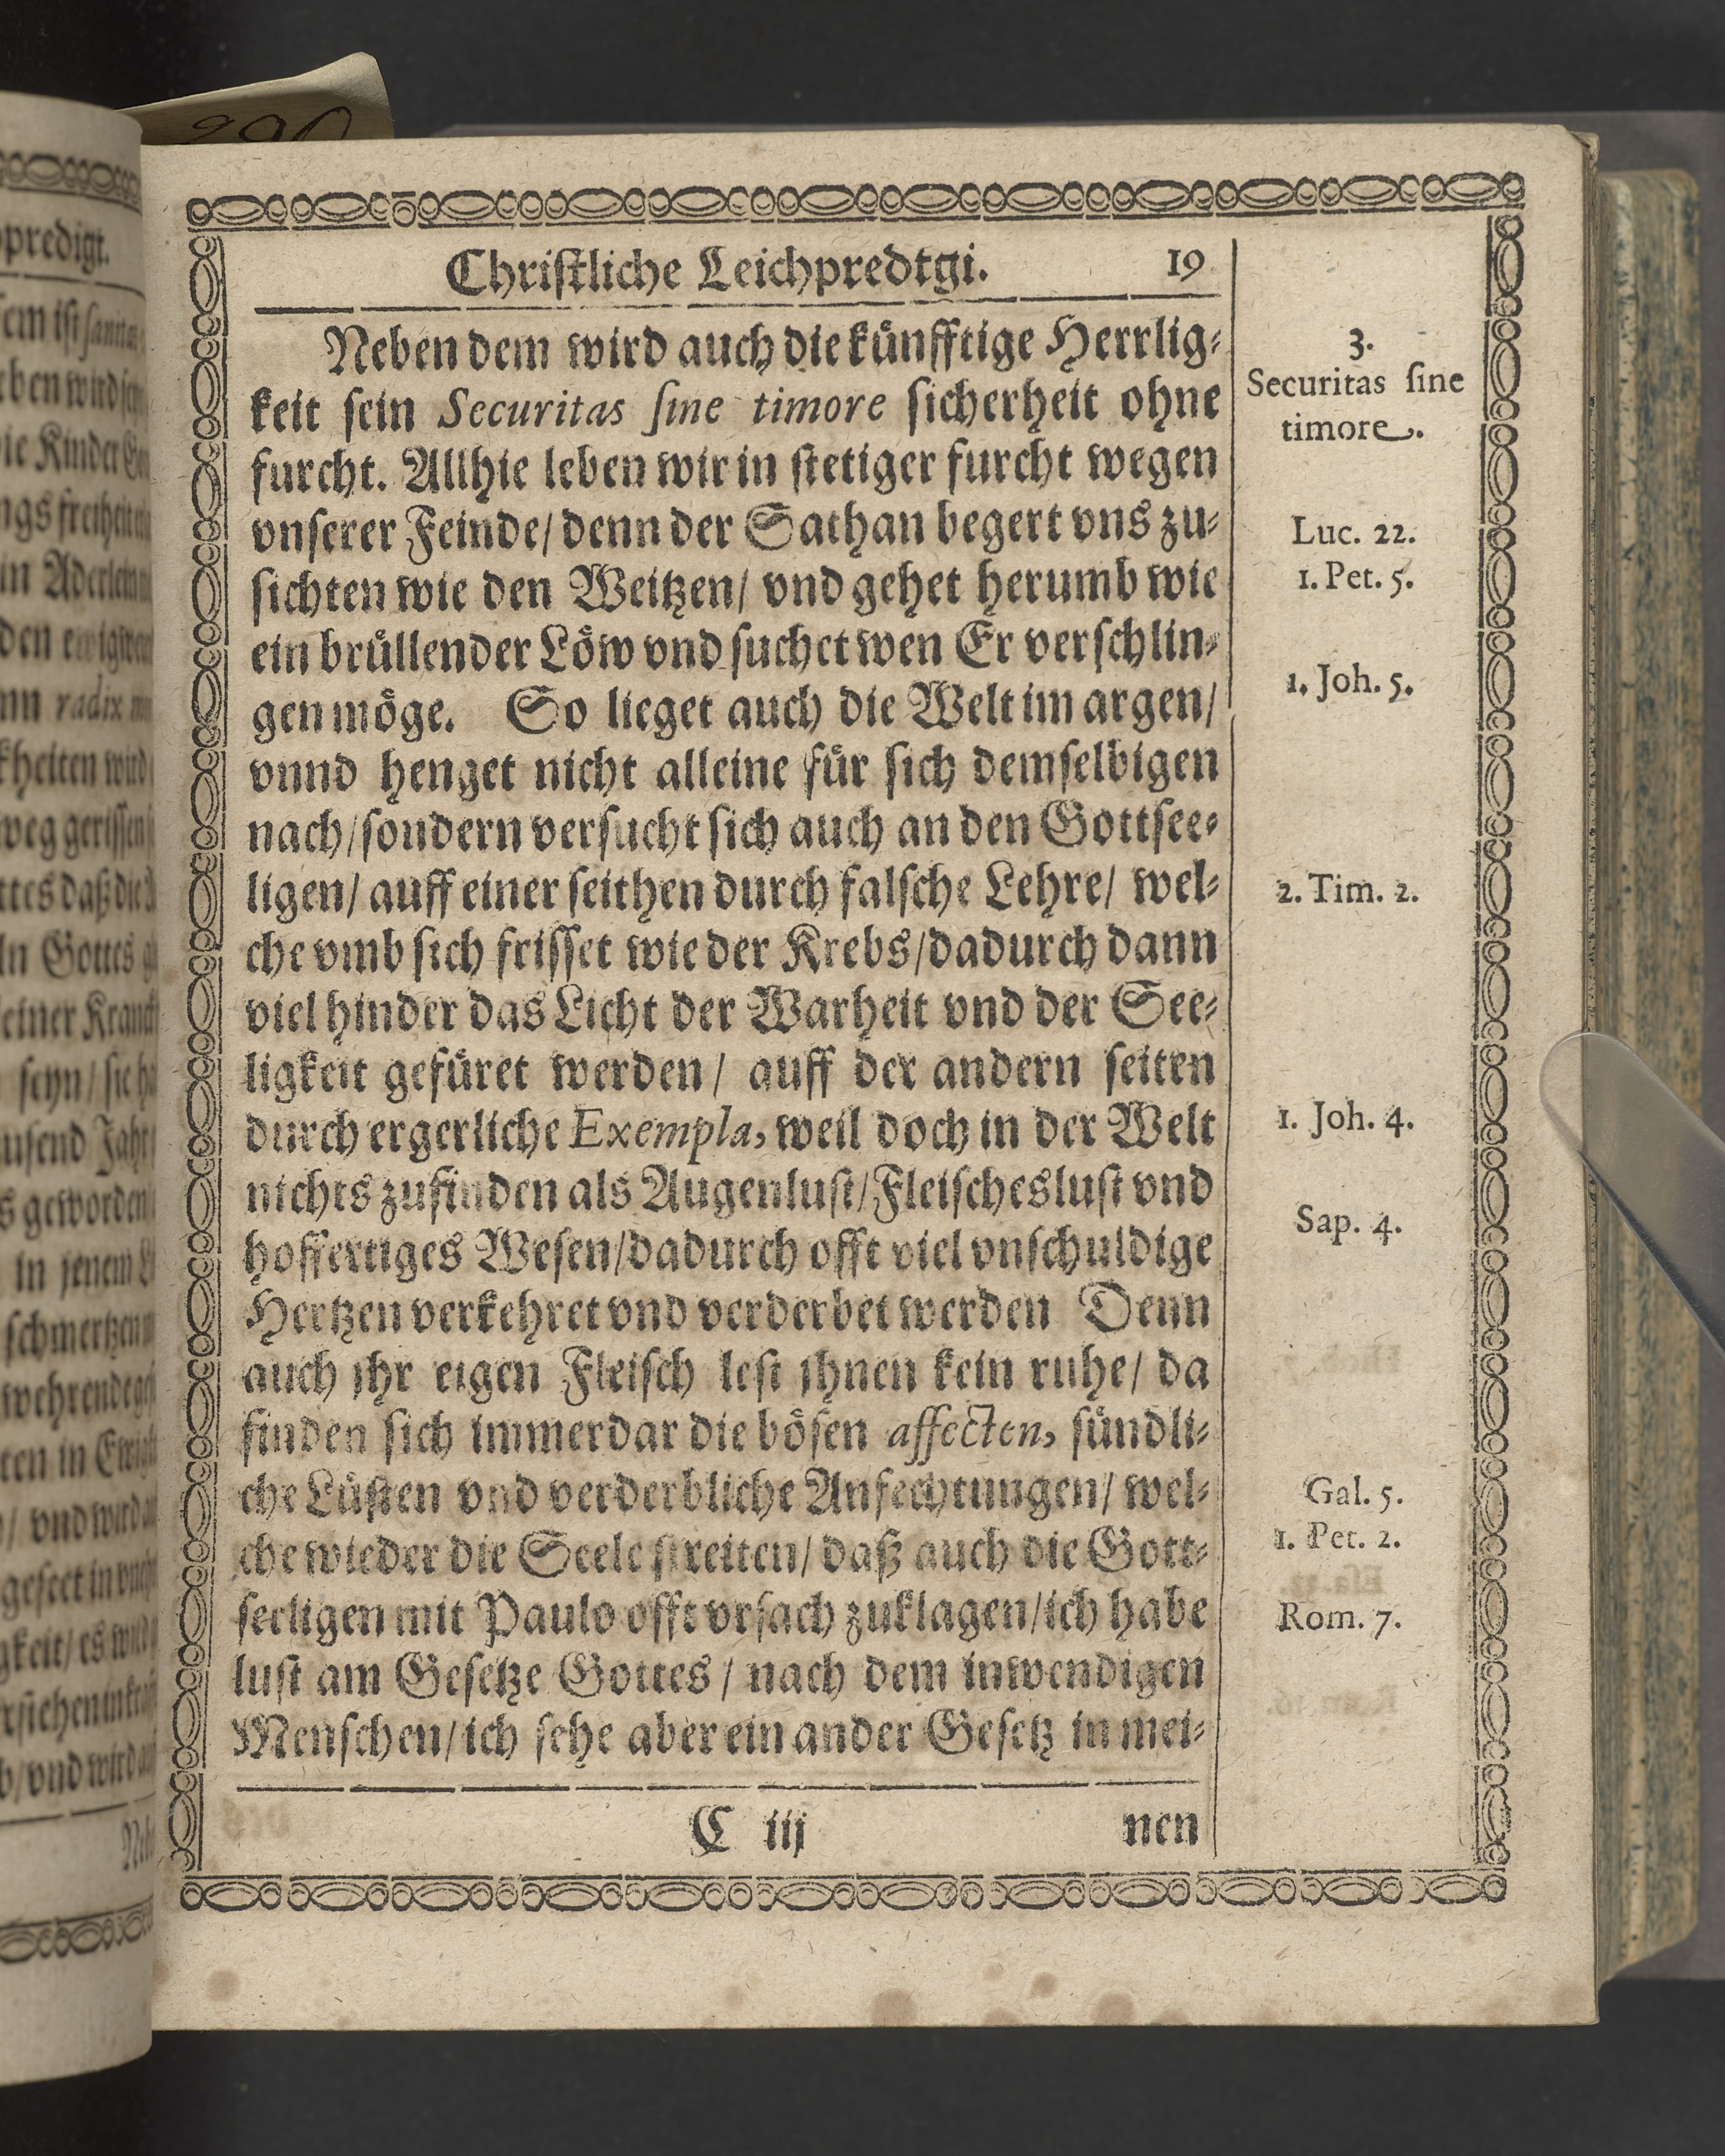 Chriſtliche Leichpredtgi. 19
Neben dem wird auch die kuͤnfftige Herrlig⸗
keit ſein Securitas ſine timore ſicherheit ohne
furcht. Allhie leben wir in ſtetiger furcht wegen
vnſerer Feinde/ denn der Sathan begert vns zu⸗
ſichten wie den Weitzen/ vnd gehet herumb wie
ein bruͤllender Loͤw vnd ſuchet wen Er verſchlin⸗
gen moͤge. So lieget auch die Welt im argen/
vnnd henget nicht alleine fuͤr ſich demſelbigen
nach/ſondern verſucht ſich auch an den Gottſee⸗
ligen/ auff einer ſeithen durch falſche Lehre/ wel⸗
che vmb ſich friſſet wie der Krebs/dadurch dann
viel hinder das Licht der Warheit vnd der See⸗
ligkeit gefuͤret werden/ auff der andern ſeiten
durch ergerliche Exempla, weil doch in der Welt
nichts zufinden als Augenluſt/Fleiſchesluſt vnd
hoffertiges Weſen/dadurch offt viel vnſchuldige
Hertzen verkehret vnd verderbet werden Denn
auch jhr eigen Fleiſch leſt jhnen kein ruhe/ da
finden ſich immerdar die boͤſen affecten, ſuͤndli⸗
che Luͤſten vnd verderbliche Anfechtungen/ wel⸗
che wieder die Seele ſtreiten/ daß auch die Gott⸗
ſeeligen mit Paulo offt vrſach zuklagen/ich habe
luſt am Geſetze Gottes/ nach dem inwendigen
Menſchen/ich ſehe aber ein ander Geſetz in mei⸗
C iij nen
3.
Securitas ſine
timore.
Luc. 22.
1. Pet. 5.
1. Joh. 5.
2. Tim. 2.
1. Joh. 4.
Sap. 4.
Gal. 5.
1. Pet. 2.
Rom. 7.